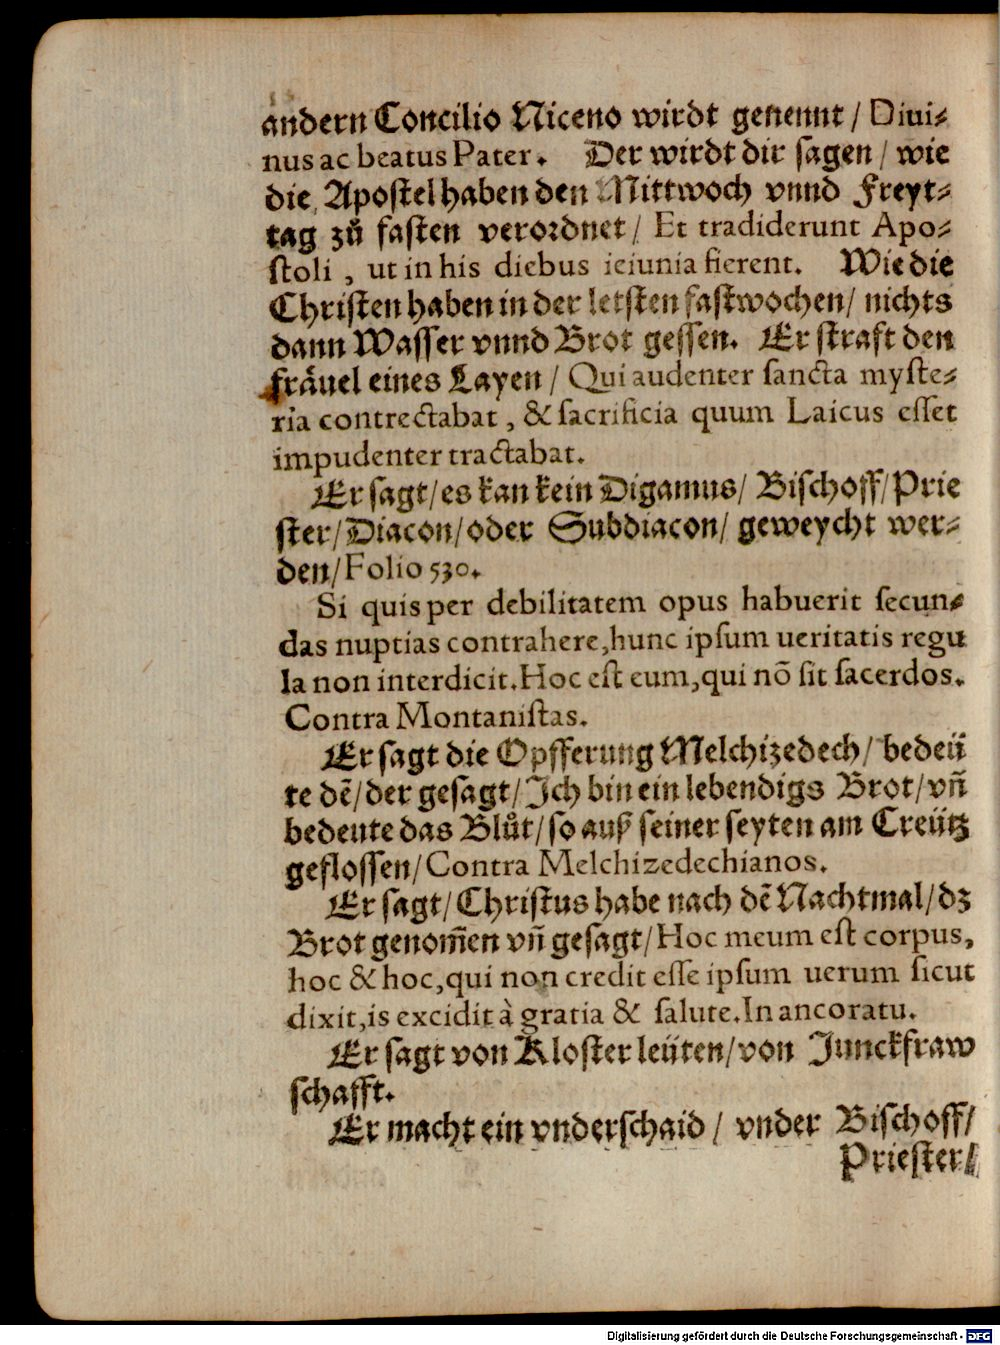 andern Concilio Niceno wirdt genennt / Diui⸗
nus ac beatus Pater. Der wirdt dir sagen / wie
die Apostel haben den Mittwoch vnnd Freyt⸗
tag zů fasten verordnet / Et tradiderunt Apo⸗
stoli, ut in his diebus ieiunia fierent. Wie die
Christen haben in der letsten fastwochen / nichts
dann Wasser vnnd Brot gessen. Er straft den
fräuel eines Layen / Qui audenter sancta myste⸗
ria contrectabat, & sacrificia quum Laicus esset
impudenter tractabat.
Er sagt / es kan kein Digamus / Bischoff / Prie
ster / Diacon / oder Subdiacon / geweycht wer⸗
den / Folio 530.
Si quis per debilitatem opus habuerit secun⸗
das nuptias contrahere, hunc ipsum ueritatis regu
la non interdicit. Hoc est eum, qui nõ sit sacerdos.
Contra Montanistas.
Er sagt die Opfferung Melchizedech / bedeü
te dē / der gesagt / Ich bin ein lebendigs Brot / vñ
bedeute das Blůt / so auß seiner seyten am Creütz
geflossen / Contra Melchizedechianos.
Er sagt / Christus habe nach dē Nachtmal / dz
Brot genom̃en vñ gesagt / Hoc meum est corpus,
hoc & hoc, qui non credit esse ipsum uerum sicut
dixit, is excidit à gratia & salute. In ancoratu.
Er sagt von Kloster leüten / von Junckfraw
schafft.
Er macht ein vnderschaid / vnder Bischoff /
Priester /
Digitalisierung gefördert durch die Deutsche Forschungsgemeinschaft - DFG